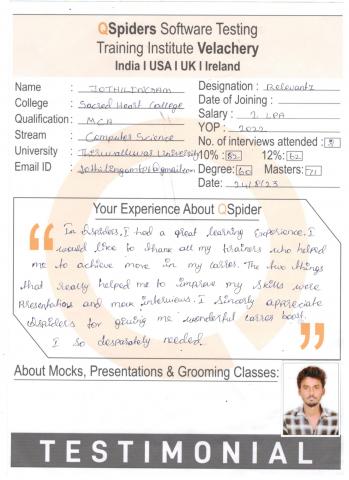 QSpiders Software Testing
Training Institute Velachery
India I USA I UK I Ireland
Name : JOTHILINGAM
Designation : Relevantz
College : Sacred Heart College
Date of Joining :
Qualification : MCA
Salary : 2 LPA
Stream : Computer Science
YOP : 2022
No. of interviews attended : 8
University : Thiruvalluvar University
10% : 82 12% : 62
Email ID :
Degree: 60 Masters: 71
Date: 24/8/23
Your Experience About QSpider
In Qspiders, I had a great learning experience. I
would like to thank all my trainers who helped
me to achieve more in my carres. The two things
that really helped me to improve my skills were
Presentations and mock interviews. I sincerly appreciate
Qspiders for giving me wonderful carres boost.
I so desparately needed.
About Mocks, Presentations & Grooming Classes:
TESTIMONIAL